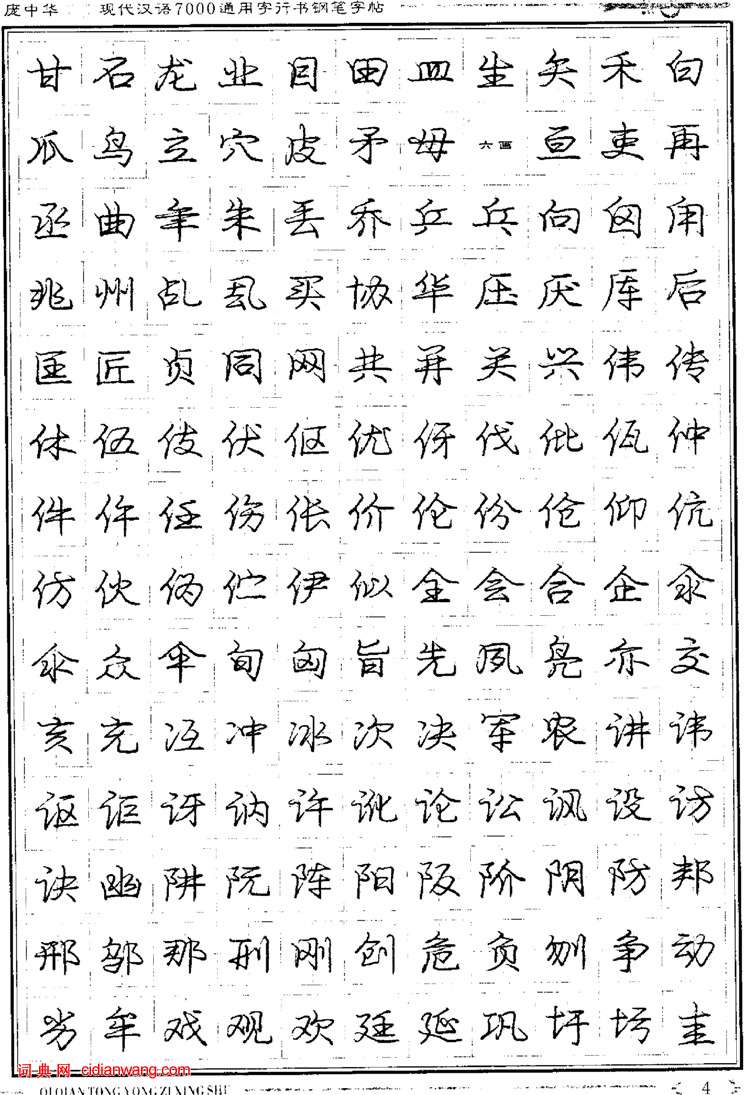 庞中华 现代汉语7000通用字行书钢笔字帖
甘石龙业目田皿生矢禾白
瓜鸟立穴皮矛母 六画 亘吏再
丞曲年朱丢乔乒乓向囟甪
兆州乩乱买协华压厌厍后
匡匠贞同网共并关兴伟传
休伍伎伏伛优伢伐仳佤仲
件仵任伤伥价伦份伧仰伉
仿伙伪伫伊似全会合企汆
氽众伞旬匈旨先夙凫亦交
亥充冱冲冰次决军农讲讳
讴讵讶讷许讹论讼讽设访
诀凼阱阮阵阳阪阶阴防邦
邢邬那刑刚创危负刎争动
劣牟戏观欢廷延巩圩圬圭
词典网 cidianwang.com
QI QIAN TONG YONG ZI XING SHU
4